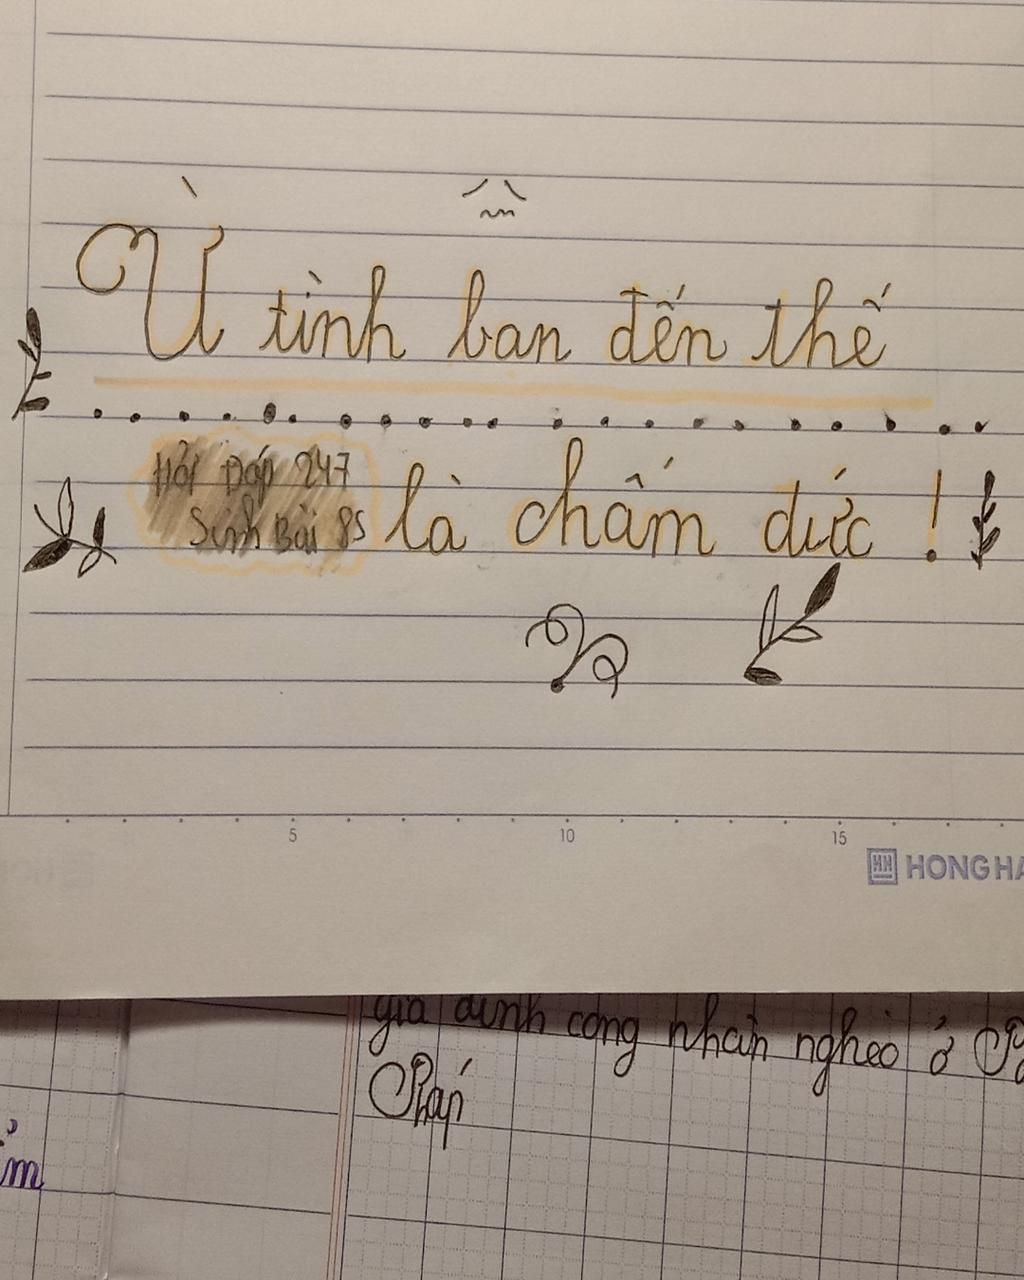 Ừ tình bạn đến thế
Hỏi Đáp 247
Sinh Bùi 8S
là chấm dứt !
5 10 15
HONG HA
gia đình công nhân nghèo ở
Pháp